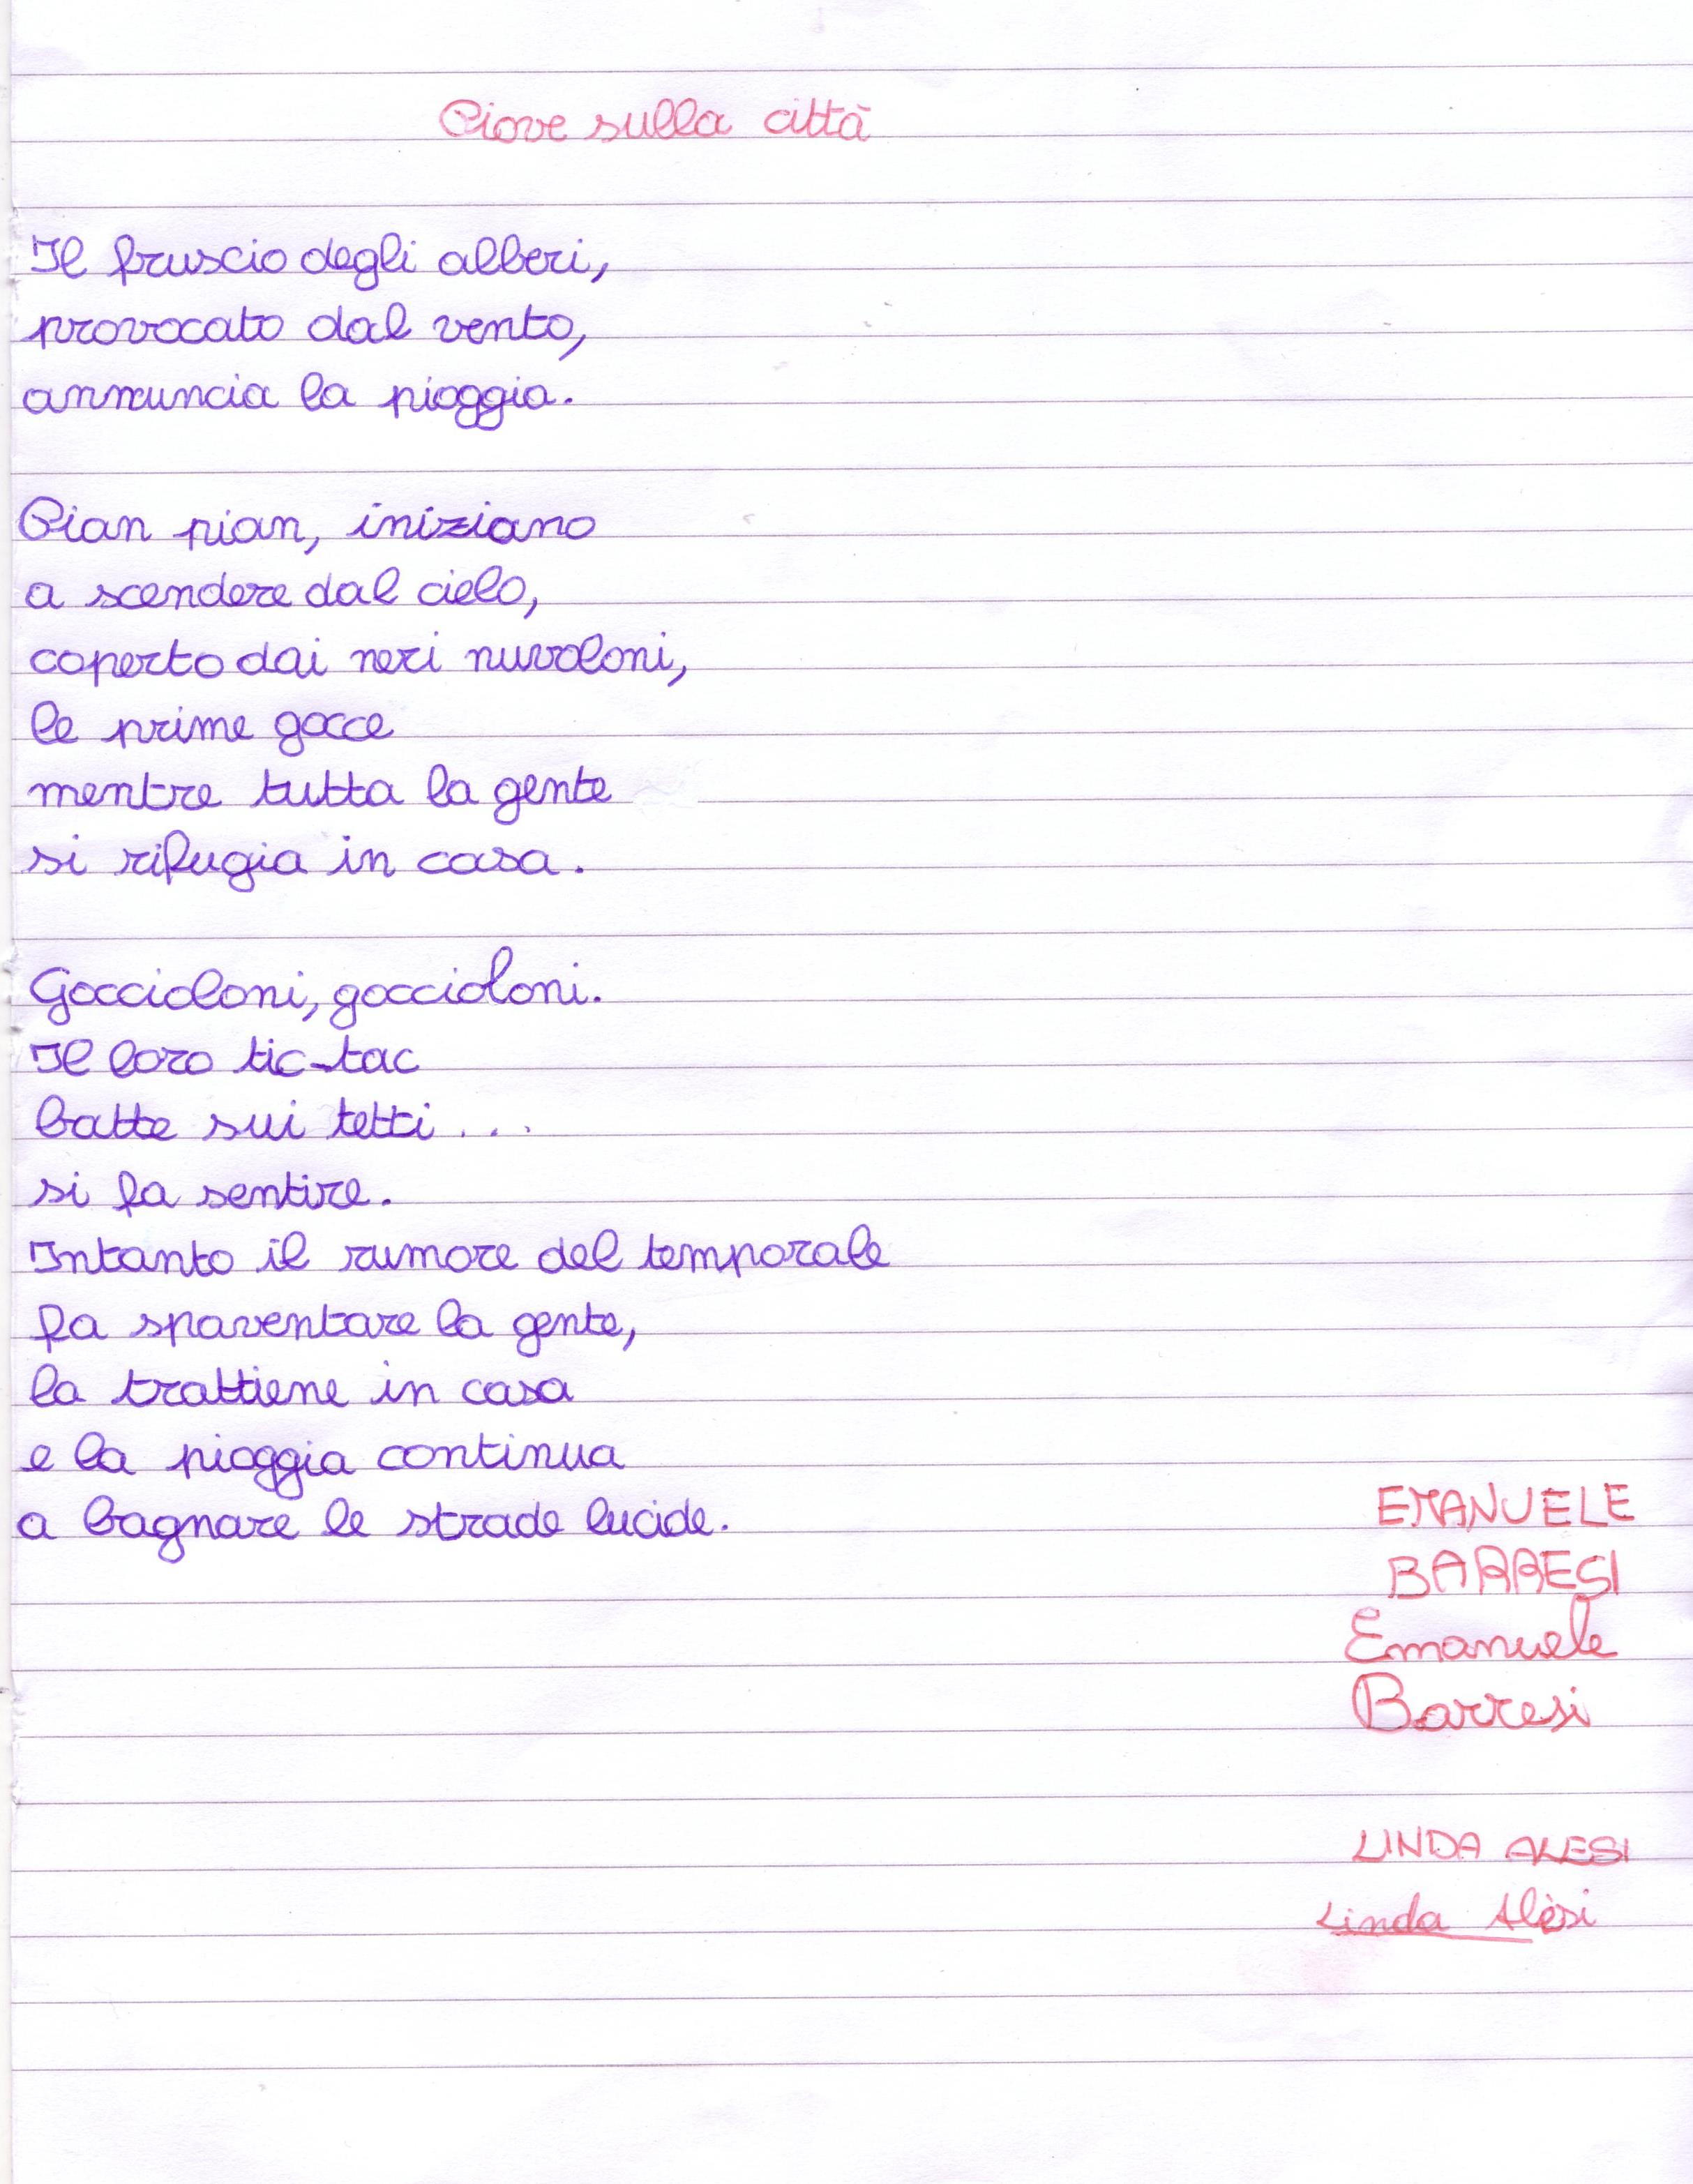 Piove sulla città
Il fruscio degli alberi,
provocato dal vento,
annuncia la pioggia.
Pian pian, iniziano
a scendere dal cielo,
coperto dai neri nuvoloni,
le prime gocce
mentre tutta la gente
si rifugia in casa.
Goccioloni, goccioloni.
Il loro tic-tac
batte sui tetti...
si fa sentire.
Intanto il rumore del temporale
fa spaventare la gente,
la trattiene in casa
e la pioggia continua
a bagnare le strade lucide.
EMANUELE
BARRESI
Emanuele
Barresi
LINDA ALESI
Linda Alèsi